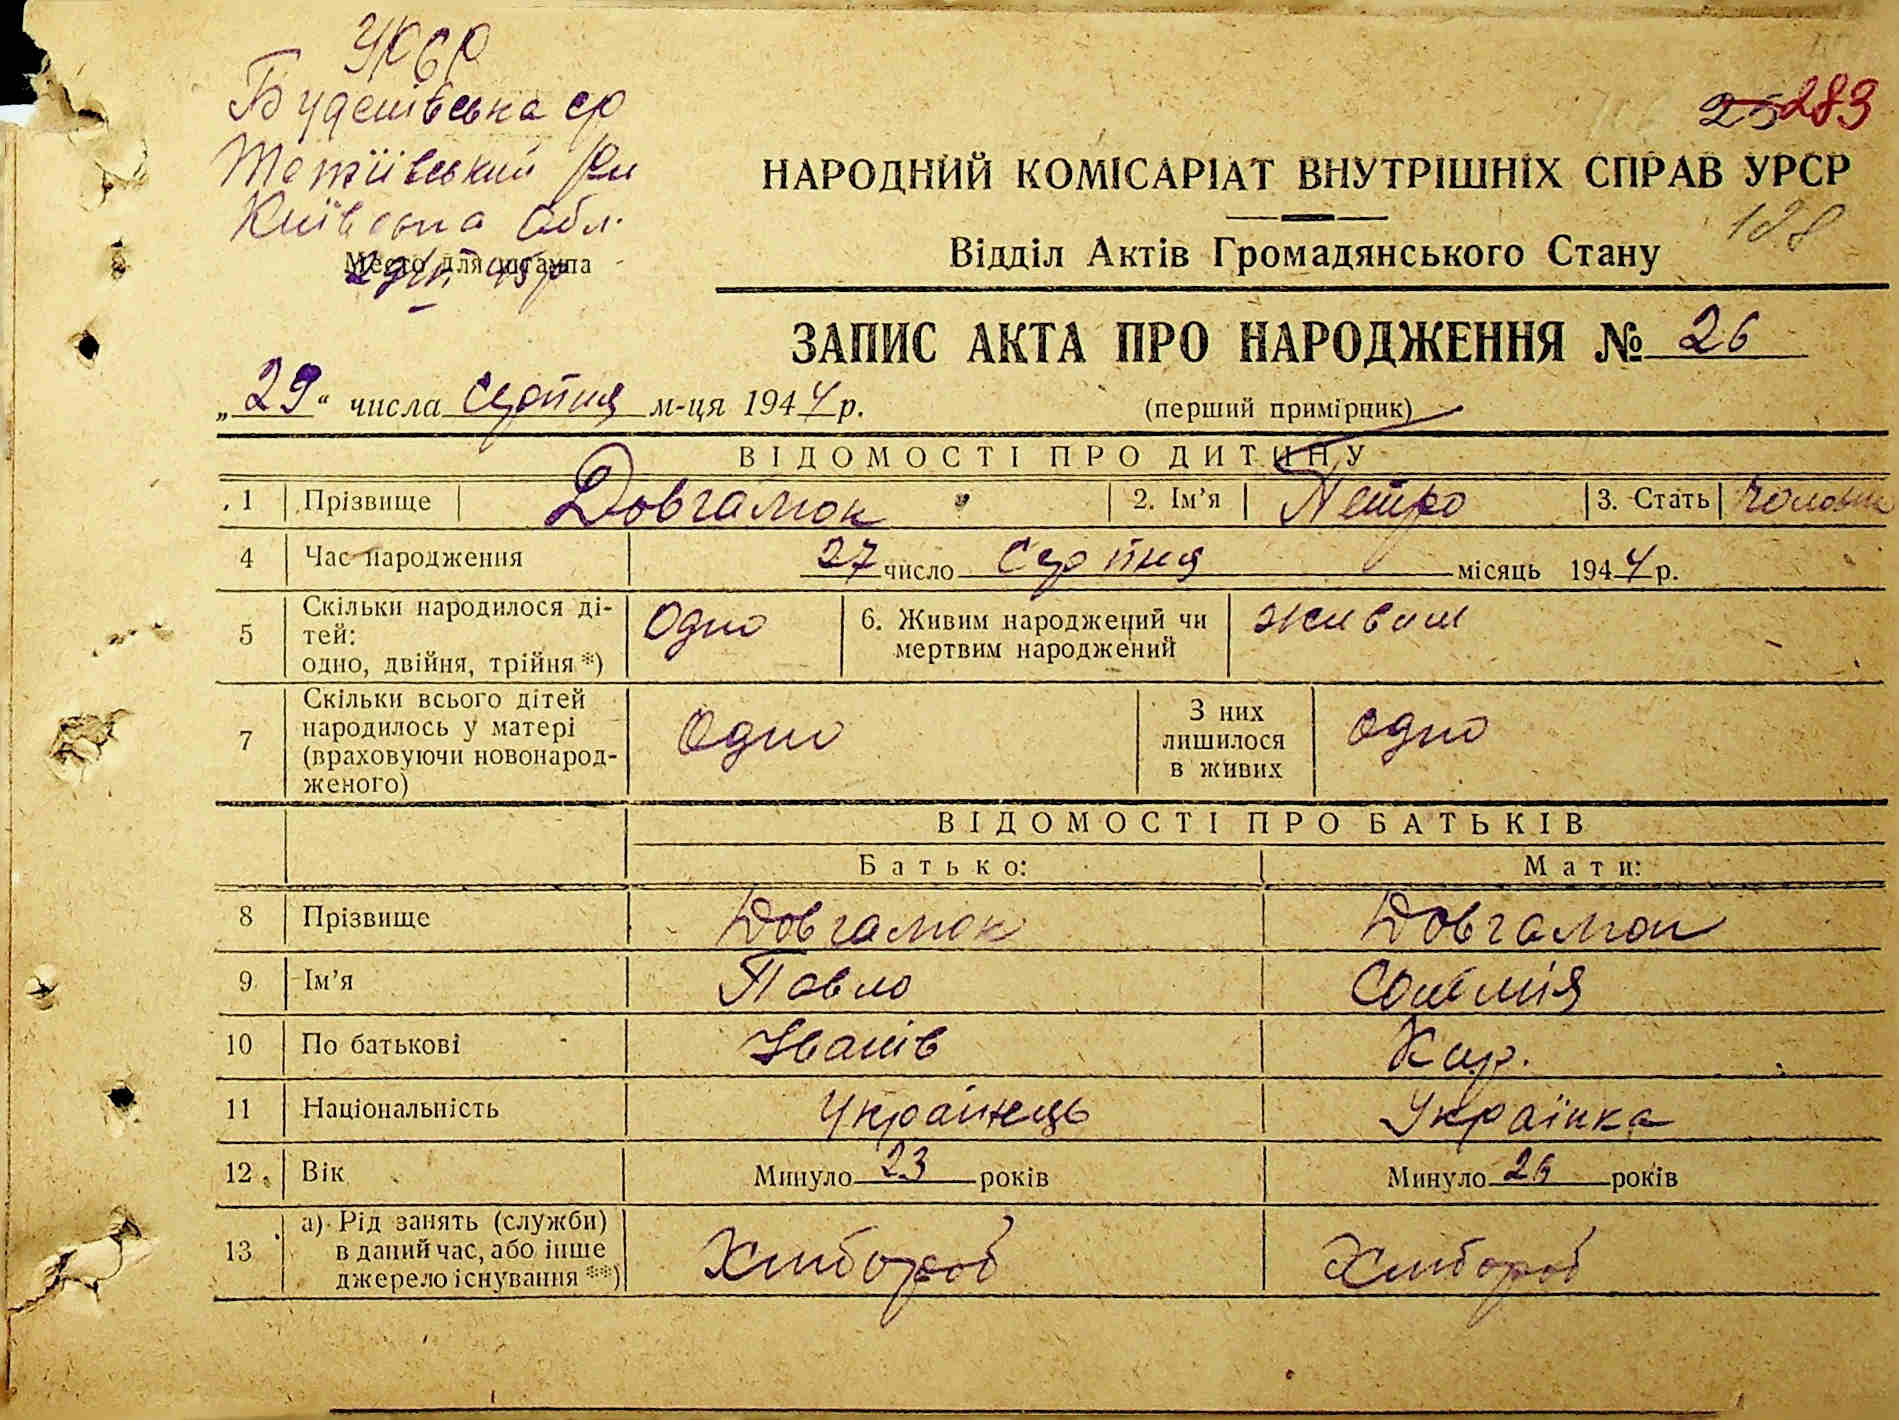 УРСР
Тетіївський рн
Київська обл.
Место для штампа
25 283
НАРОДНИЙ КОМІСАРІАТ ВНУТРІШНІХ СПРАВ УРСР
188
Відділ Актів Громадянського Стану
ЗАПИС АКТА ПРО НАРОДЖЕННЯ № 26
„29“ числа Серпня м-ця 1944 р.
(перший примірник)
ВІДОМОСТІ ПРО ДИТИНУ
1 Прізвище Довгалюк 2. Ім’я Петро 3. Стать Чоловіч
4 Час народження 27 число Серпня місяць 1944 р.
5 Скільки народилося ді-
тей:
одно, двійня, трійня *) Одно 6. Живим народжений чи
мертвим народжений живим
7 Скільки всього дітей
народилось у матері
(враховуючи новонарод-
женого) Одно З них
лишилося
в живих Одно
ВІДОМОСТІ ПРО БАТЬКІВ
Батько: Мати:
8 Прізвище Довгалюк Довгалюк
9 Ім’я Павло
10 По батькові Іванів Кир.
11 Національність Українець Українка
12 Вік Минуло 23 років Минуло 26 років
13 а) Рід занять (служби)
в даний час, або інше
джерело існування **) Хлібороб Хлібороб